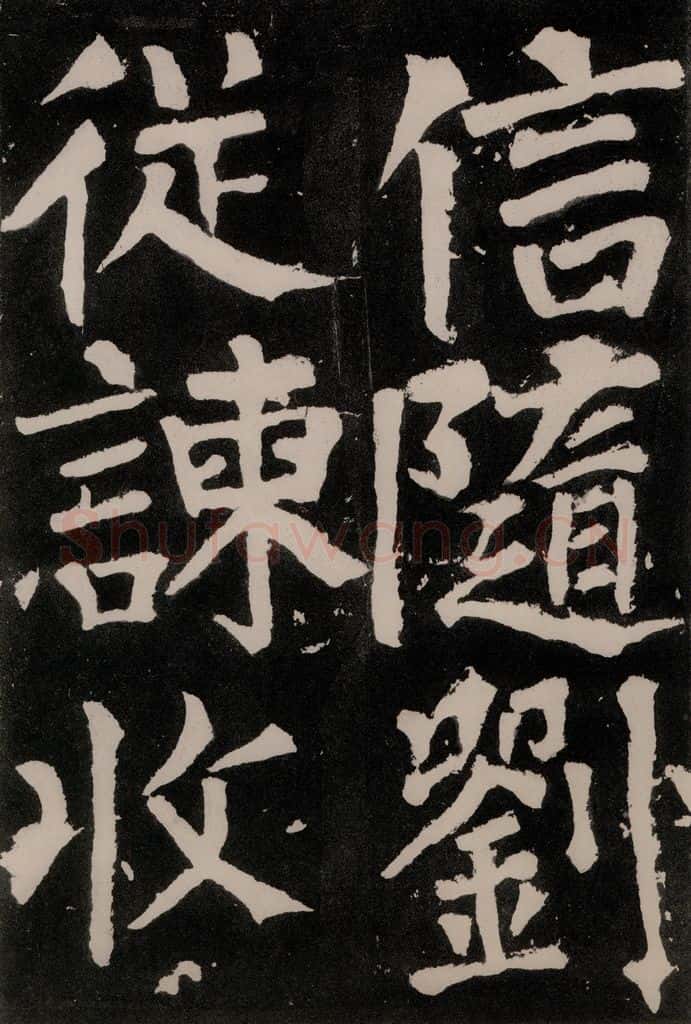 信隨劉
従諫收
Shufawang.CN